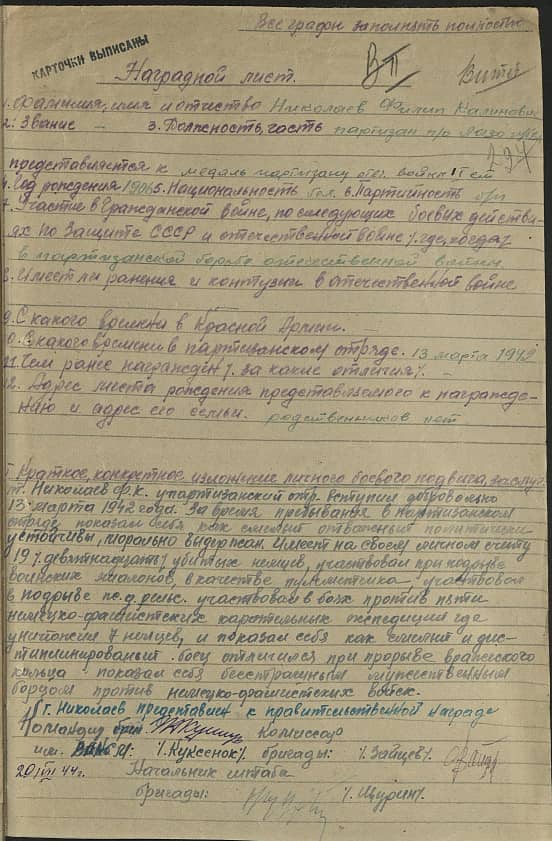 Все графы заполнять полностью
КАРТОЧКИ ВЫПИСАНЫ
ВП
Наградной лист.
1. Фамилия, имя и отчество Николаев Филип Калинович
2. Звание – 3. Должность, часть партизан п/о Лазо
297
представляется к медаль партизану отеч. войны II ст
4. Год рождения 1906 5. Национальность бел. 6. Партийность б/п
7. Участие в Гражданской войне, последующих боевых действи-
ях по защите СССР и отечественной войне /. где, когда
в партизанской борьбе отечественной войны
8. Имеет ли ранения и контузии в отечественной войне
9. С какого времени в Красной Армии.
10. С какого времени в партизанском отряде. 13 марта 1942
11. Чем ранее награжден /. за какие отличия /. –
12. Адрес места рождения представляемого к награжде-
нию и адрес его семьи. родственников нет
Краткое, конкретное изложение личного боевого подвига, заслуг
тт. Николаев Ф.К. у партизанский отр. вступил добровольно
13 марта 1942 года. За время пребывания в партизанском
отряде показал себя как смелый отважный политически
устойчивы, морально выдерсан. Имеет на своем личном счету
19 /. девятнадцать / убитых немцев, участвовал при подрыве
воинских эшалонов, в качестве пулеметчика, участвовал
в подрыве ж.д. рельс. участвовал в боях против пяти
немецко-фашистских карательных экспедиций где
уничтожил 7 немцев, и показал себя как смелый и дис-
типлинированый боец отличился при прорыве вражеского
кольца показал себя бесстрашным мужественным
борцом против немецко-фашистских войск.
т. Николаев представлен к правительственной награде
Командир бриг. Комиссар
им. /. Куксенок /. бригады: /. Зайцев /.
20/VII 44 г. Начальник штаба
бригады: /. Щурин /.